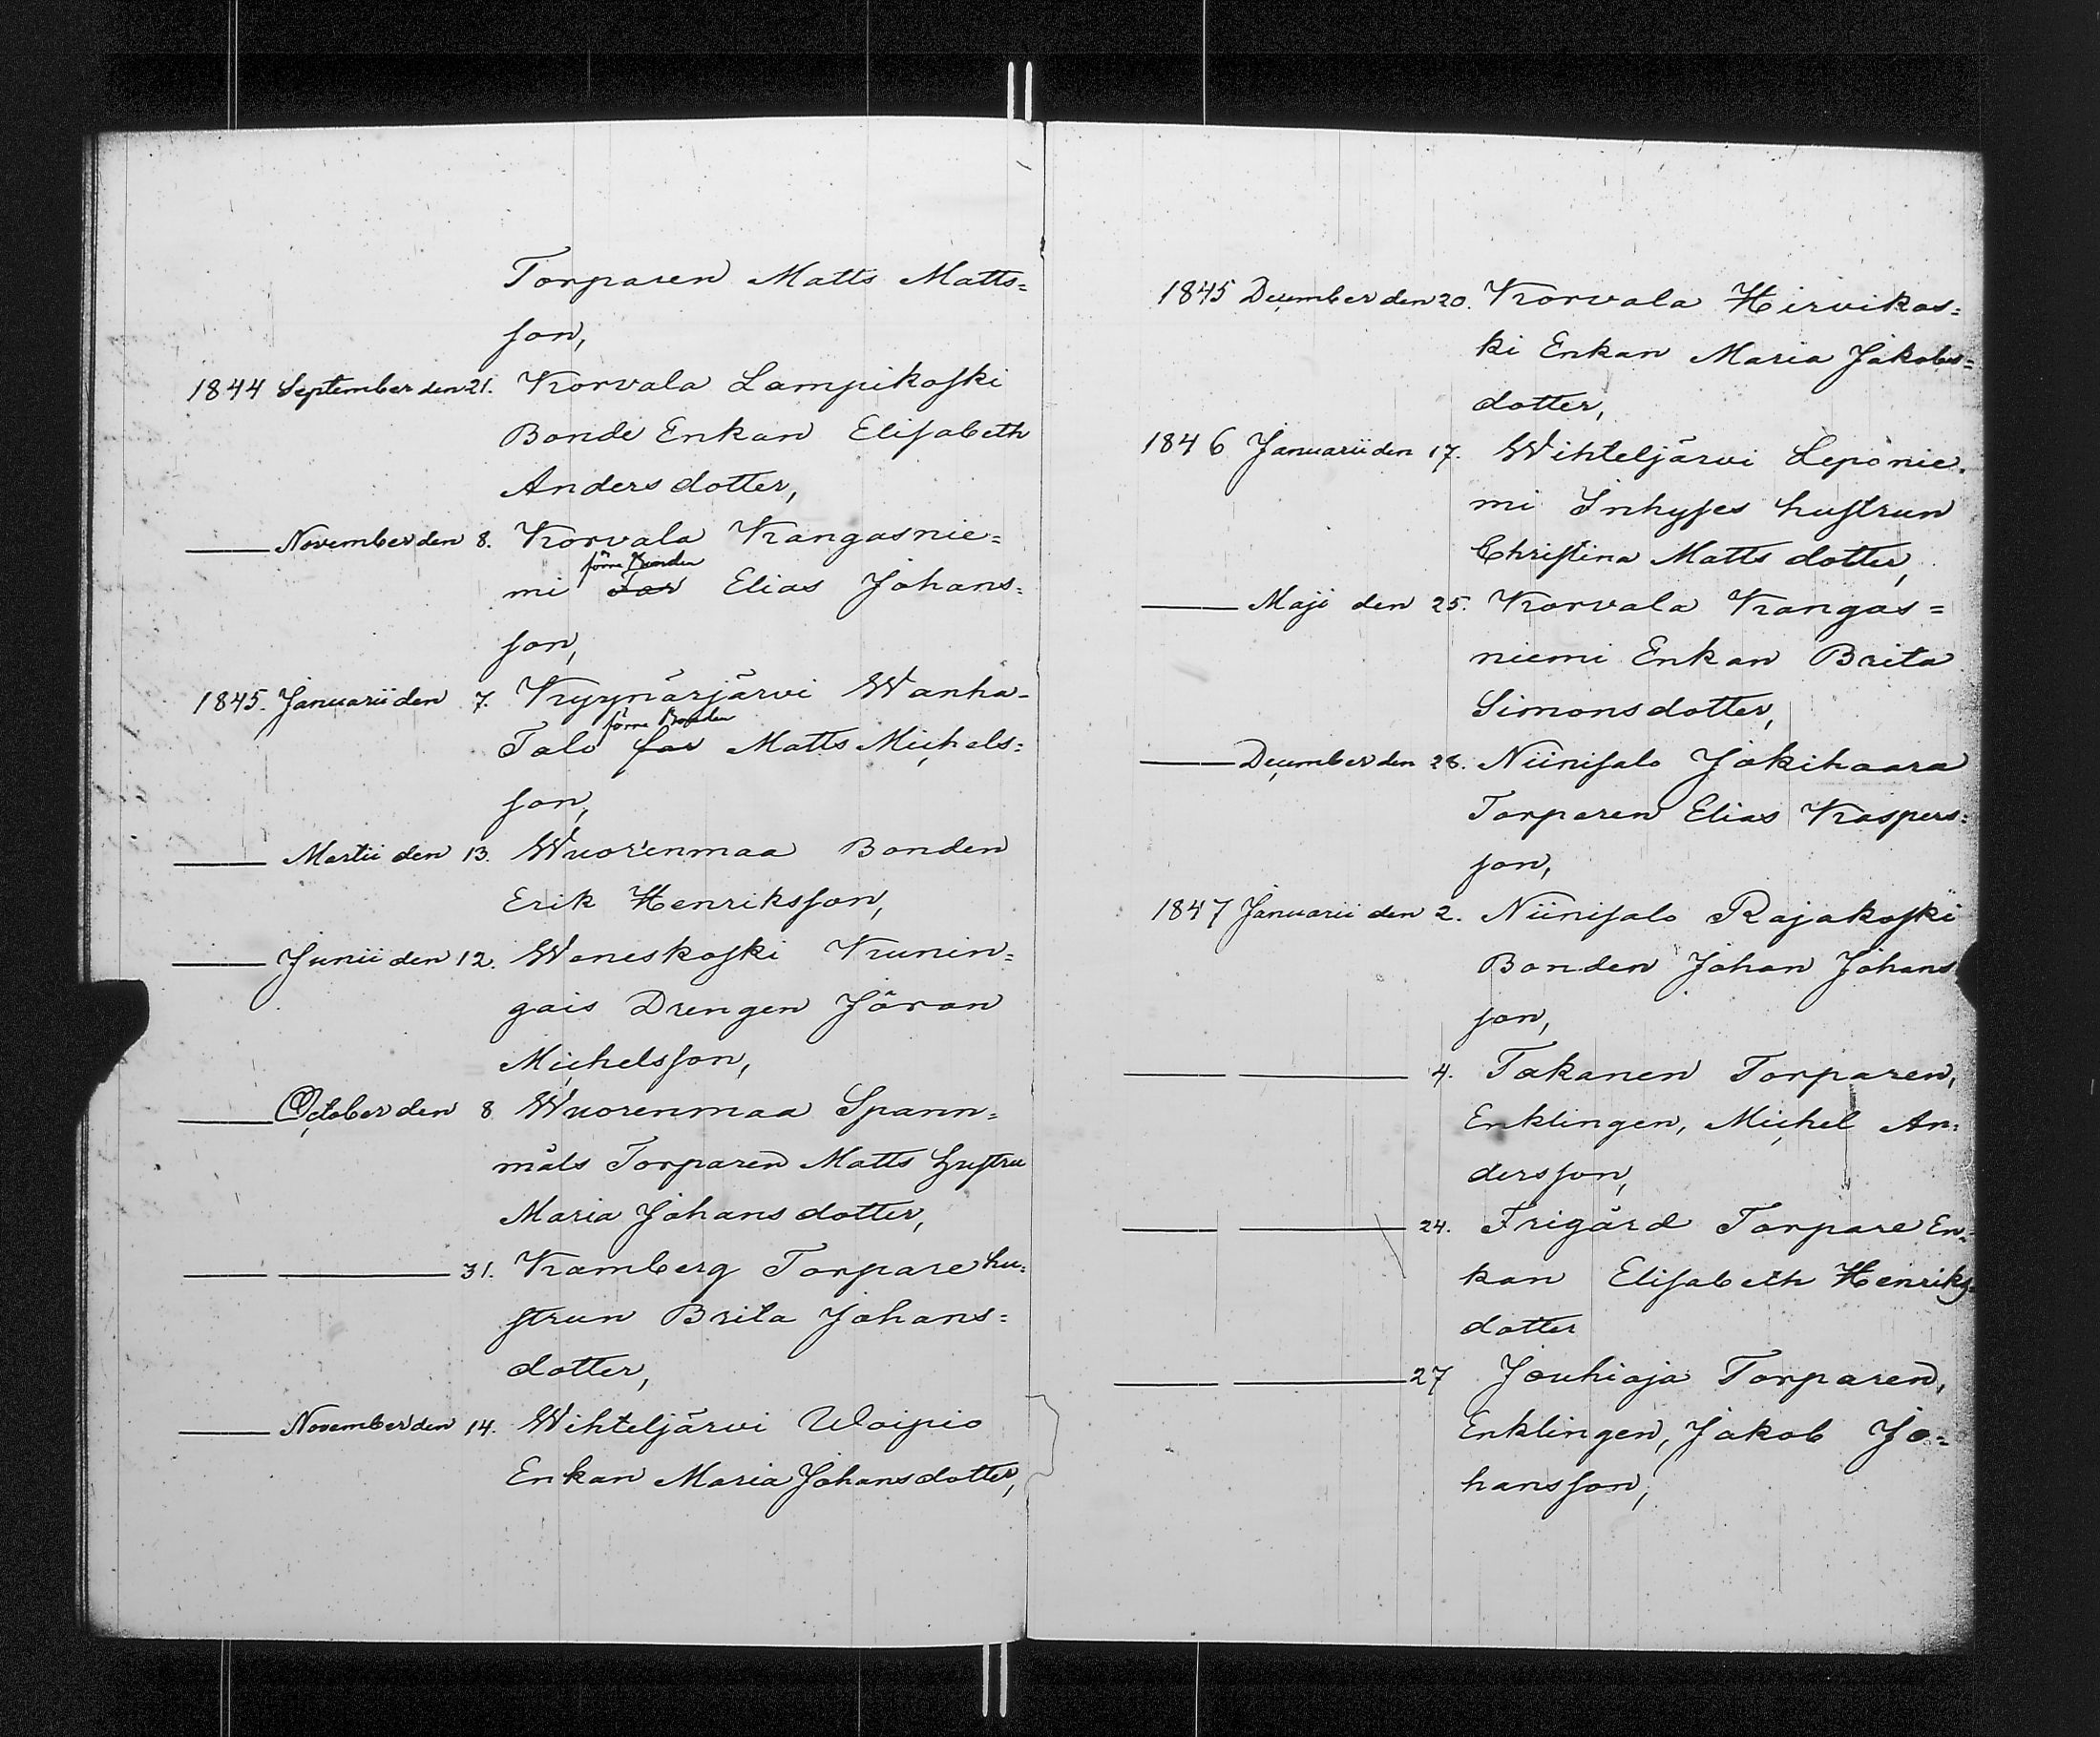 Torparen Matts Matts=
son,
1844 September den 21. Korvala Lampikoski
Bonde Enkan Elisabeth
Anders dotter,
— November den 8. Korvala Kangasnie=
förra Bonden
mi Far Elias Johans=
son,
1845. Januarii den 7. Kyynärjärvi Wanha-
förra Bonden
Talo far Matts Michels=
son,
— Martii den 13. Wuorenmaa Bonden
Erik Henriksson,
— Junii den 12. Waneskoski Kunin=
gais Drengen Jöran
Michelsson,
— October den 8 Wuorenmaa Spann=
måls Torparen Matts Hustru
Maria Johans dotter,
— — 31. Kramberg Torpare hu=
strun Brita Johans=
dotter,
— November den 14. Wihteljärvi Uoipio
Enkan Maria Johansdotter,
1845 December den 20. Korvala Hirvikos=
ki Enkan Maria Jakobs=
dotter,
1846 Januarii den 17. Wihteljärvi Leponie=
mi Inhyses hustrun
Christina Matts dotter,
— Maji den 25. Korvala Kangas=
niemi Enkan Brita
Simonsdotter,
— December den 28. Niinisalo Jokihaara
Torparen Elias Kaspers=
son,
1847 Januarii den 2. Niinisalo Rajakoski
Bonden Johan Johans
son,
— — 4. Takanen Torparen,
Enklingen, Michel An=
dersson,
— — 24. Frigård Torpare En=
kan Elisabeth Henriks=
dotter
— — 27 Jouhioja Torparen,
Enklingen, Jakob Jo=
hansson,